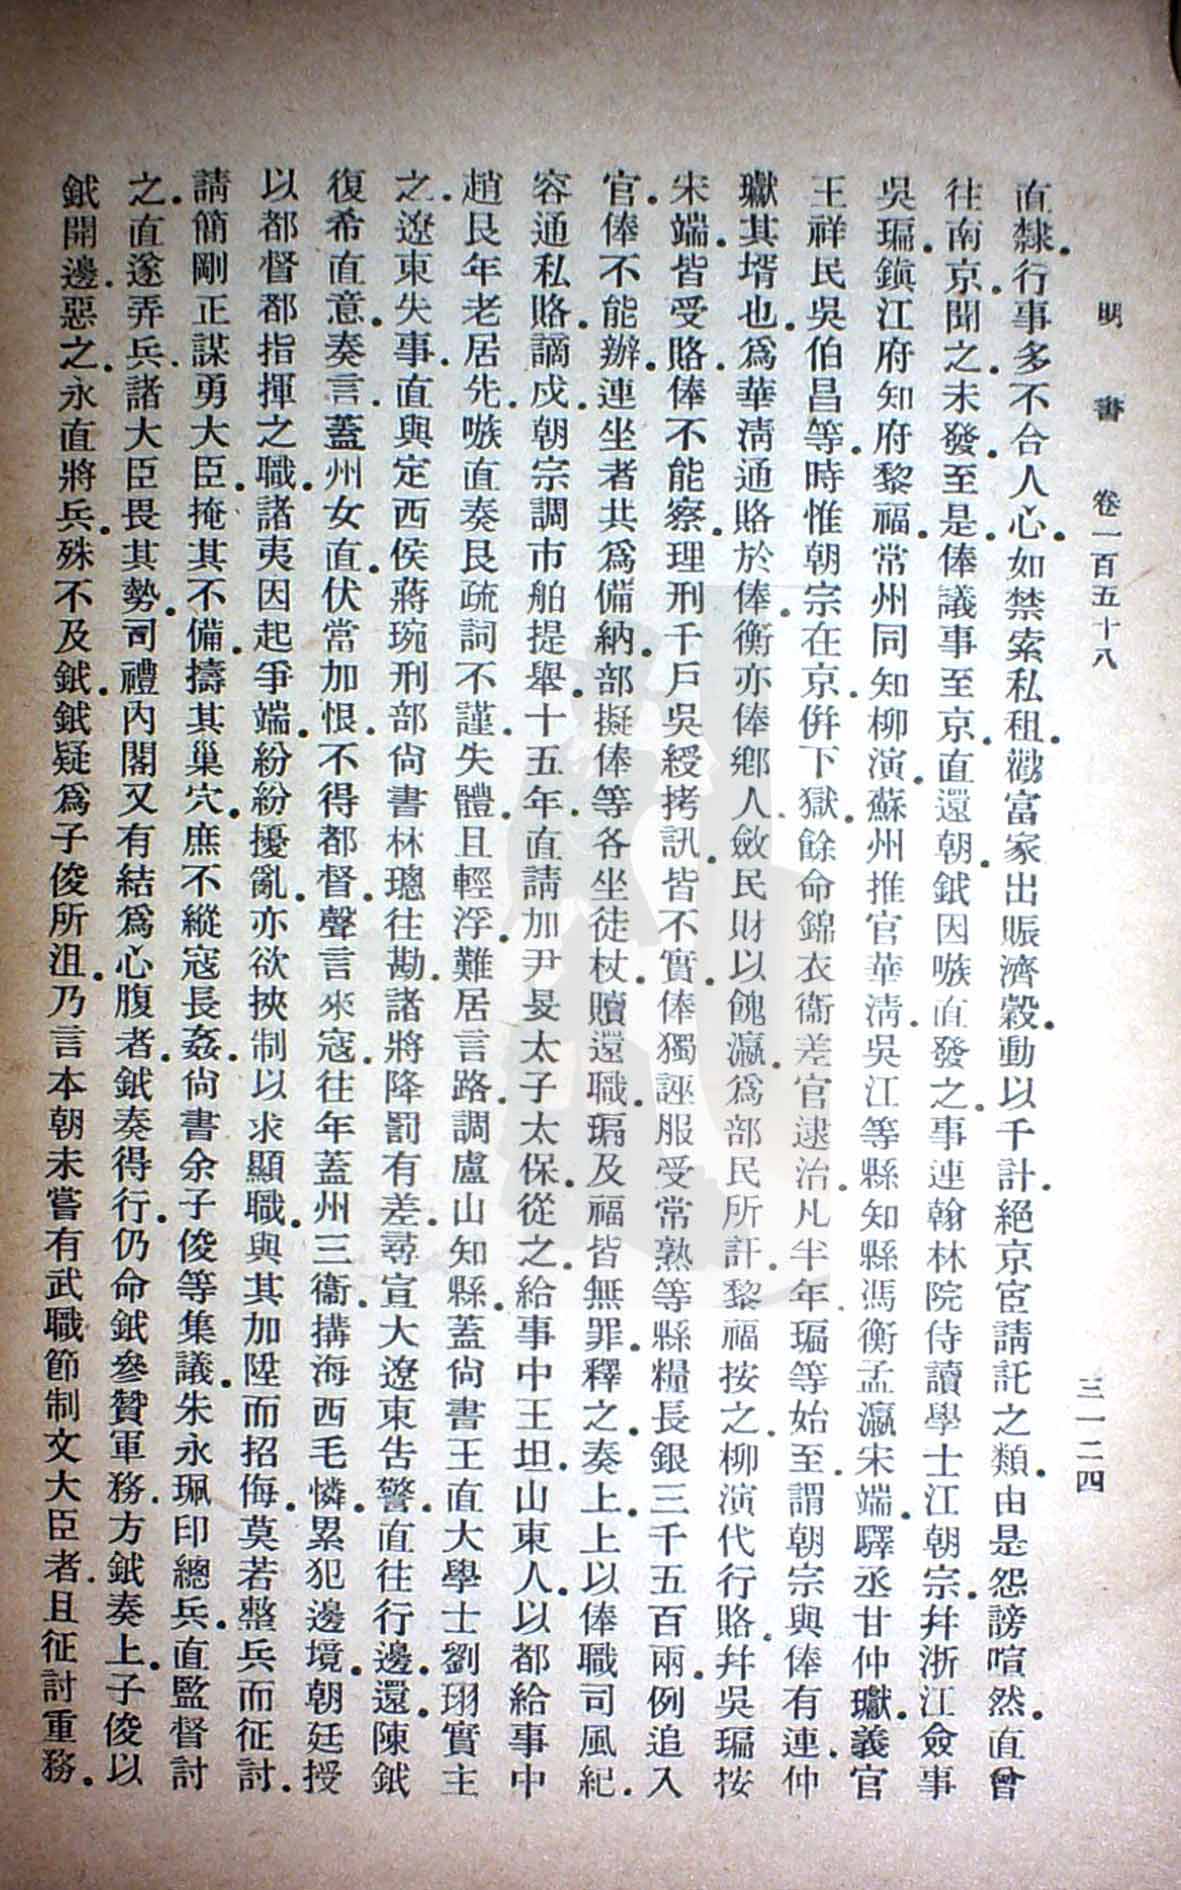 明書 卷一百五十八 三一二四
直隸。行事多不合人心。如禁索私租。勸富家出賑濟穀。動以千計。絕京宦請託之類。由是怨謗喧然。直曾
往南京。聞之。未發。至是。俸議事至京。直還朝。鉞因嗾直發之。事連翰林院侍讀學士江朝宗。幷浙江僉事
吳瑀。鎭江府知府黎福。常州同知柳演。蘇州推官華淸。吳江等縣知縣馮衡孟瀛宋端。驛丞甘仲瓛。義官
王祥民吳伯昌等。時惟朝宗在京。倂下獄。餘命錦衣衞差官逮治。凡半年。瑀等始至。謂朝宗與俸有連。仲
瓛其壻也。爲華淸通賂於俸。衡亦俸鄕人。斂民財以餽瀛。爲部民所訐。黎福按之。柳演代行賂。幷吳瑀按
宋端。皆受賂。俸不能察。理刑千戶吳綬拷訊。皆不實。俸獨誣服受常熟等縣糧長銀三千五百兩。例追入
官。俸不能辦。連坐者共爲備納。部擬俸等各坐徒杖。贖還職。瑀及福皆無罪。釋之。奏上。上以俸職司風紀。
容通私賂。謫戍。朝宗調市舶提舉。十五年。直請加尹旻太子太保。從之。給事中王坦。山東人。以都給事中
趙艮年老居先。嗾直奏艮疏詞不謹。失體。且輕浮。難居言路。調盧山知縣。蓋尙書王直大學士劉珝實主
之。遼東失事。直與定西侯蔣琬刑部尙書林璁往勘。諸將降罰有差。尋宣大遼東告警。直往行邊。還。陳鉞
復希直意。奏言。蓋州女直。伏當加恨。不得都督。聲言來寇。往年蓋州三衞。搆海西毛憐。累犯邊境。朝廷授
以都督都指揮之職。諸夷因起爭端。紛紛擾亂。亦欲挾制以求顯職。與其加陞而招侮。莫若整兵而征討。
請簡剛正謀勇大臣。掩其不備。擣其巢穴。庶不縱寇長姦。尙書余子俊等集議。朱永珮印總兵。直監督討
之。直遂弄兵。諸大臣畏其勢。司禮內閣又有結爲心腹者。鉞奏得行。仍命鉞參贊軍務。方鉞奏上。子俊以
鉞開邊。惡之。永直將兵。殊不及鉞。鉞疑爲子俊所沮。乃言本朝未嘗有武職節制文大臣者。且征討重務。